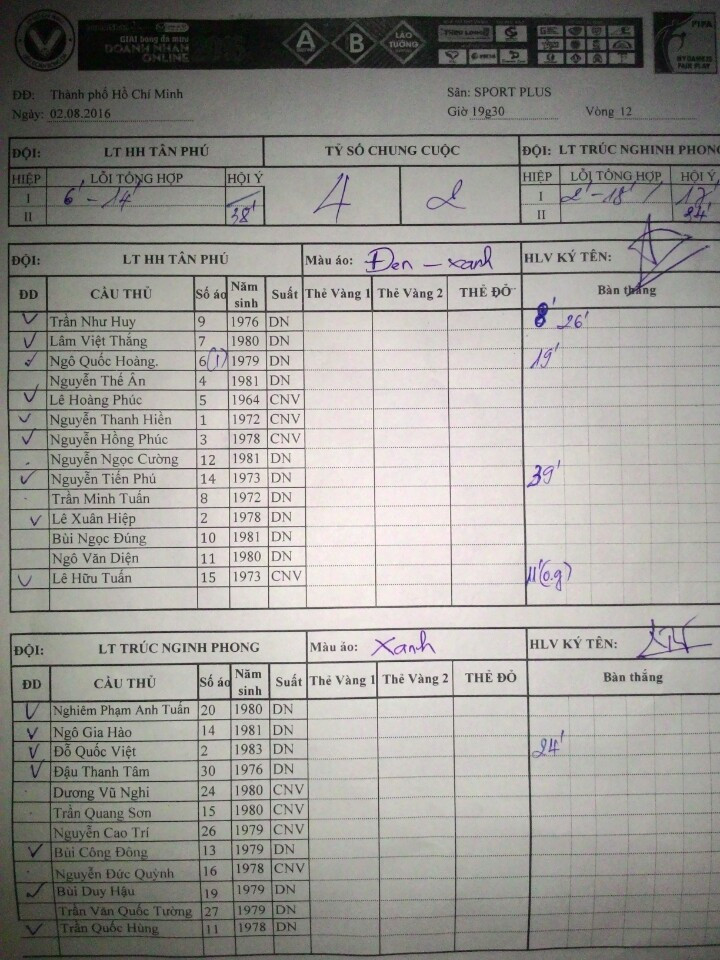 GIẢI bóng đá mini
DOANH NHÂN
ONLINE
A B LÀO TƯỞNG
FIFA
MY GAME IS
FAIR PLAY
ĐĐ: Thành phố Hồ Chí Minh Sân: SPORT PLUS
Ngày: 02.08.2016 Giờ 19g30 Vòng 12
ĐỘI: LT HH TÂN PHÚ TỶ SỐ CHUNG CUỘC ĐỘI: LT TRÚC NGHINH PHONG
HIỆP LỖI TỔNG HỢP HỘI Ý 4 2 HIỆP LỖI TỔNG HỢP HỘI Ý
I 6' - 14' I 2' - 18' 17'
II 38' II 34'
ĐỘI: LT HH TÂN PHÚ Màu áo: Đen - xanh HLV KÝ TÊN:
ĐD CẦU THỦ Số áo Năm sinh Suất Thẻ Vàng 1 Thẻ Vàng 2 THẺ ĐỎ Bàn thắng
Trần Như Huy 9 1976 DN 8' 26'
Lâm Việt Thắng 7 1980 DN
Ngô Quốc Hoàng. 6 (1) 1979 DN 19'
Nguyễn Thế Ân 4 1981 DN
Lê Hoàng Phúc 5 1964 CNV
Nguyễn Thanh Hiền 1 1972 CNV
Nguyễn Hồng Phúc 3 1978 CNV
Nguyễn Ngọc Cường 12 1981 DN
Nguyễn Tiến Phú 14 1973 DN 39'
Trần Minh Tuấn 8 1972 DN
Lê Xuân Hiệp 2 1978 DN
Bùi Ngọc Đúng 10 1981 DN
Ngô Văn Diện 11 1980 DN
Lê Hữu Tuấn 15 1973 CNV 11' (o.g)
ĐỘI: LT TRÚC NGINH PHONG Màu áo: Xanh HLV KÝ TÊN:
ĐD CẦU THỦ Số áo Năm sinh Suất Thẻ Vàng 1 Thẻ Vàng 2 THẺ ĐỎ Bàn thắng
Nghiêm Phạm Anh Tuấn 20 1980 DN
Ngô Gia Hào 14 1981 DN
Đỗ Quốc Việt 2 1983 DN 24'
Đậu Thanh Tâm 30 1976 DN
Dương Vũ Nghi 24 1980 CNV
Trần Quang Sơn 15 1980 CNV
Nguyễn Cao Trí 26 1979 CNV
Bùi Công Đông 13 1979 DN
Nguyễn Đức Quỳnh 16 1978 CNV
Bùi Duy Hậu 19 1979 DN
Trần Văn Quốc Tường 27 1979 DN
Trần Quốc Hùng 11 1978 DN